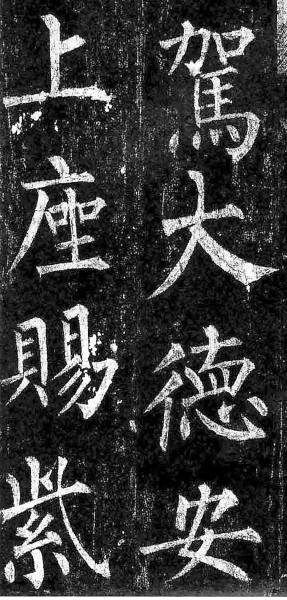 駕大德安
上座賜紫